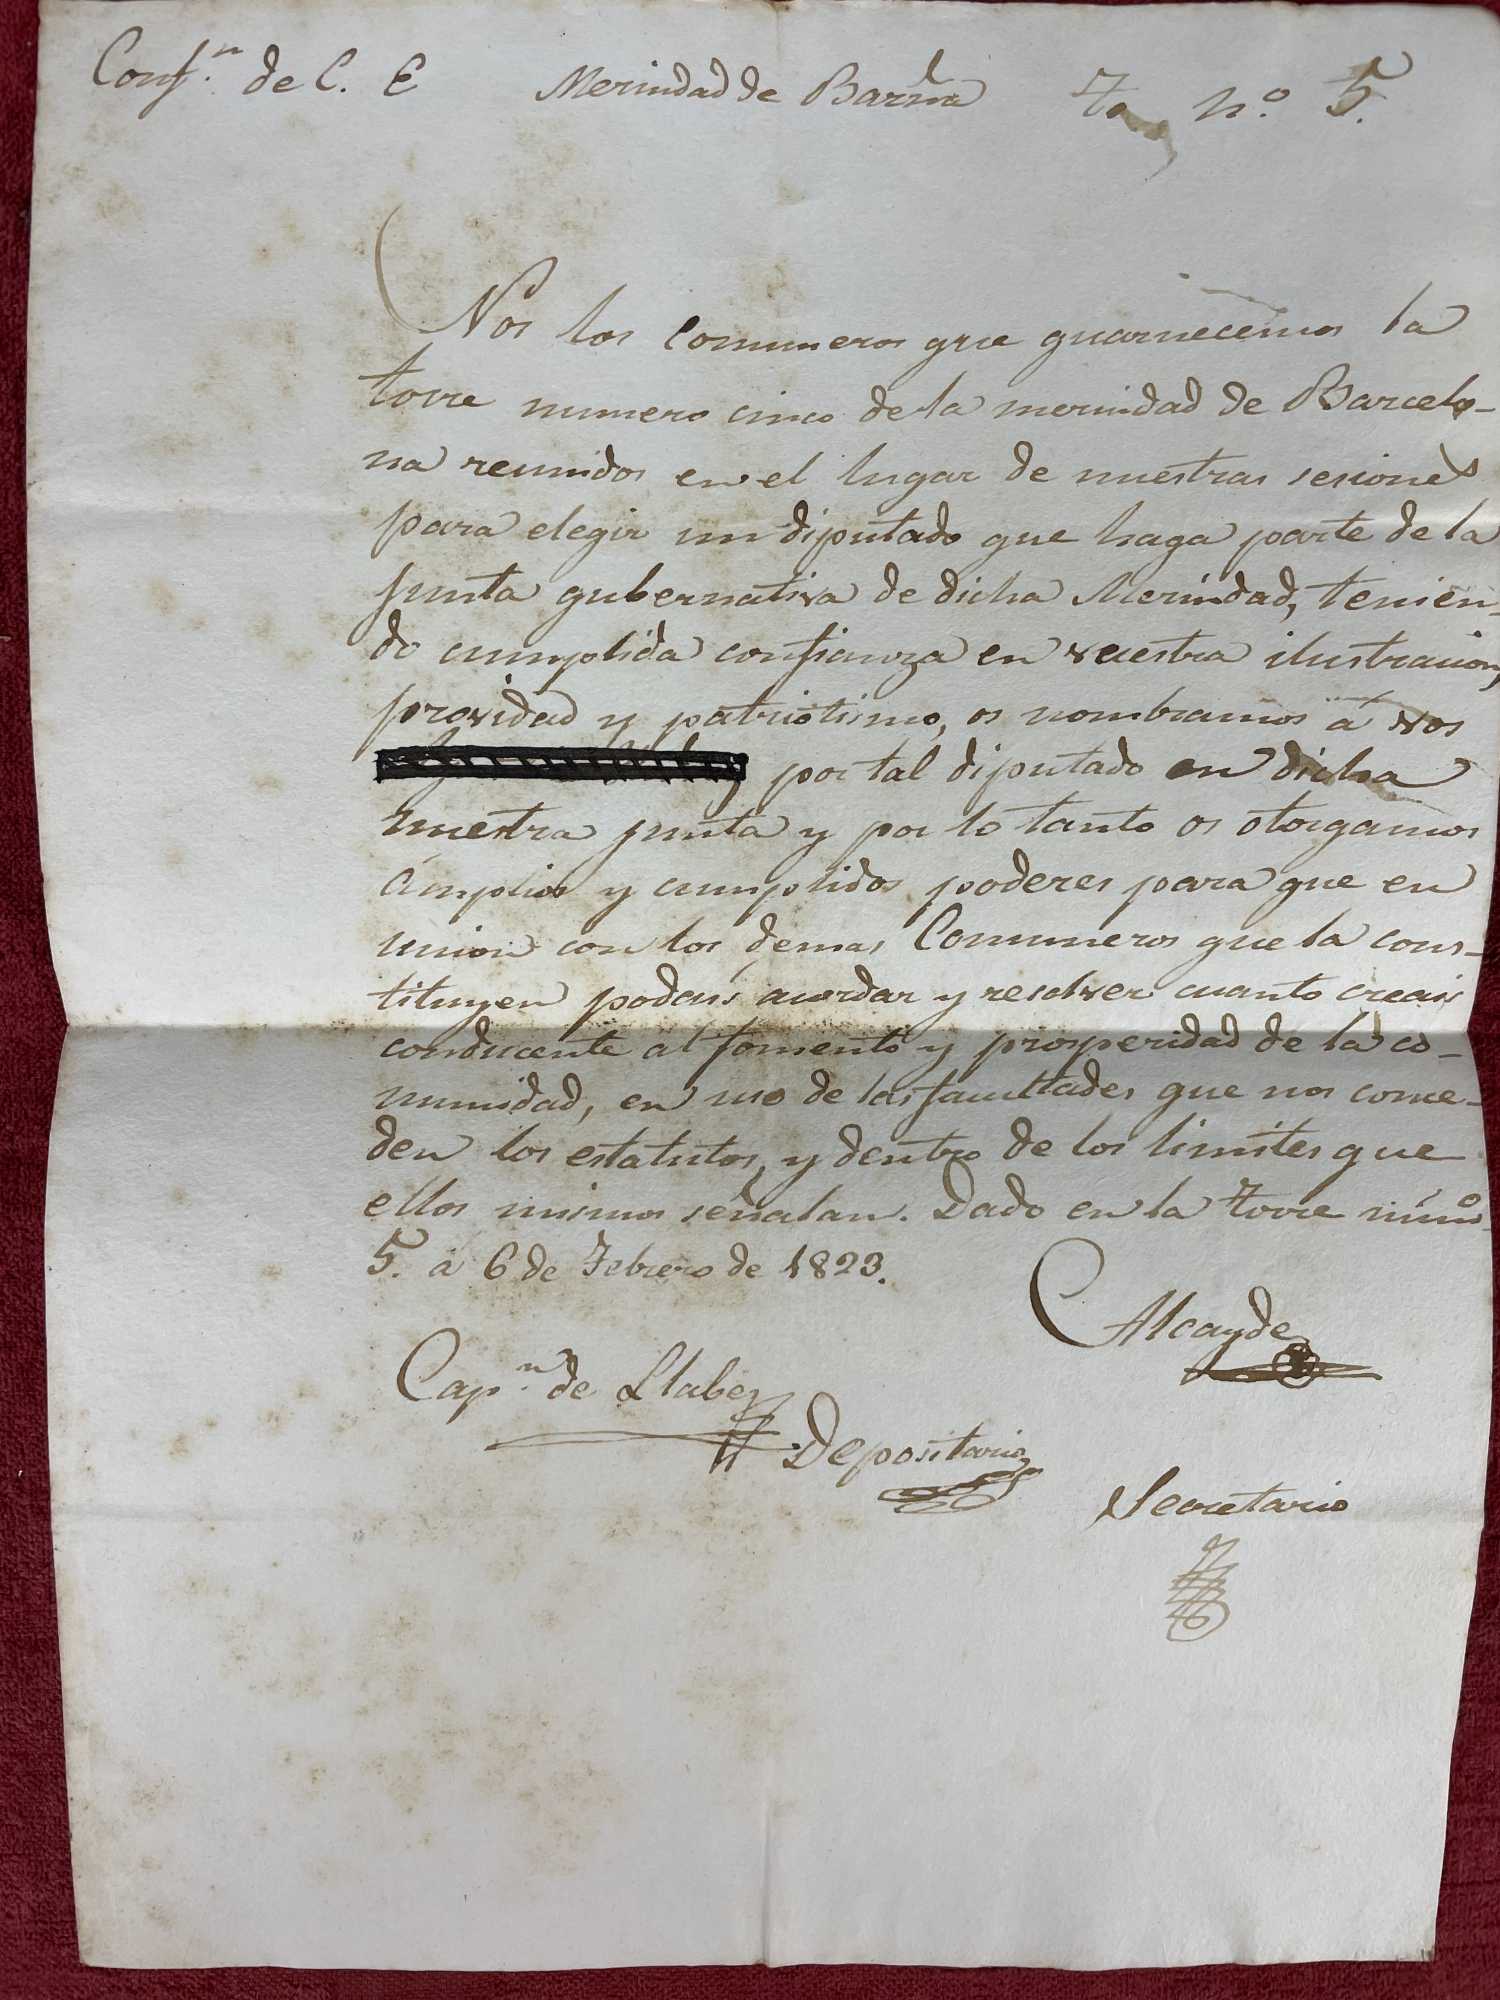 Conf.n de C. E Merindad de Barna To nº. 5.
Nos los Comuneros que guarnecemos la
torre numero cinco de la merindad de Barcelo-
na reunidos en el lugar de nuestras sesiones
para elegir un diputado que haga parte de la
junta gubernativa de dicha Merindad, tenien-
do cumplida confianza en vuestra ilustracion,
providad y patriotismo, os nombramos á vos
por tal diputado en dicha
nuestra junta y por lo tanto os otorgamos
ámplios y cumplidos poderes para que en
union con los demas Comuneros que la cons-
tituyen podais acordar y resolver cuanto creais
conducente al fomento y prosperidad de la co-
munidad, en uso de las facultades que nos conce-
den los estatutos, y dentro de los limites que
ellos mismos señalan. Dado en la Torre núm.o
5. á 6 de Febrero de 1823.
Alcayde
Cap.n de Llabes
Depositario
Secretario